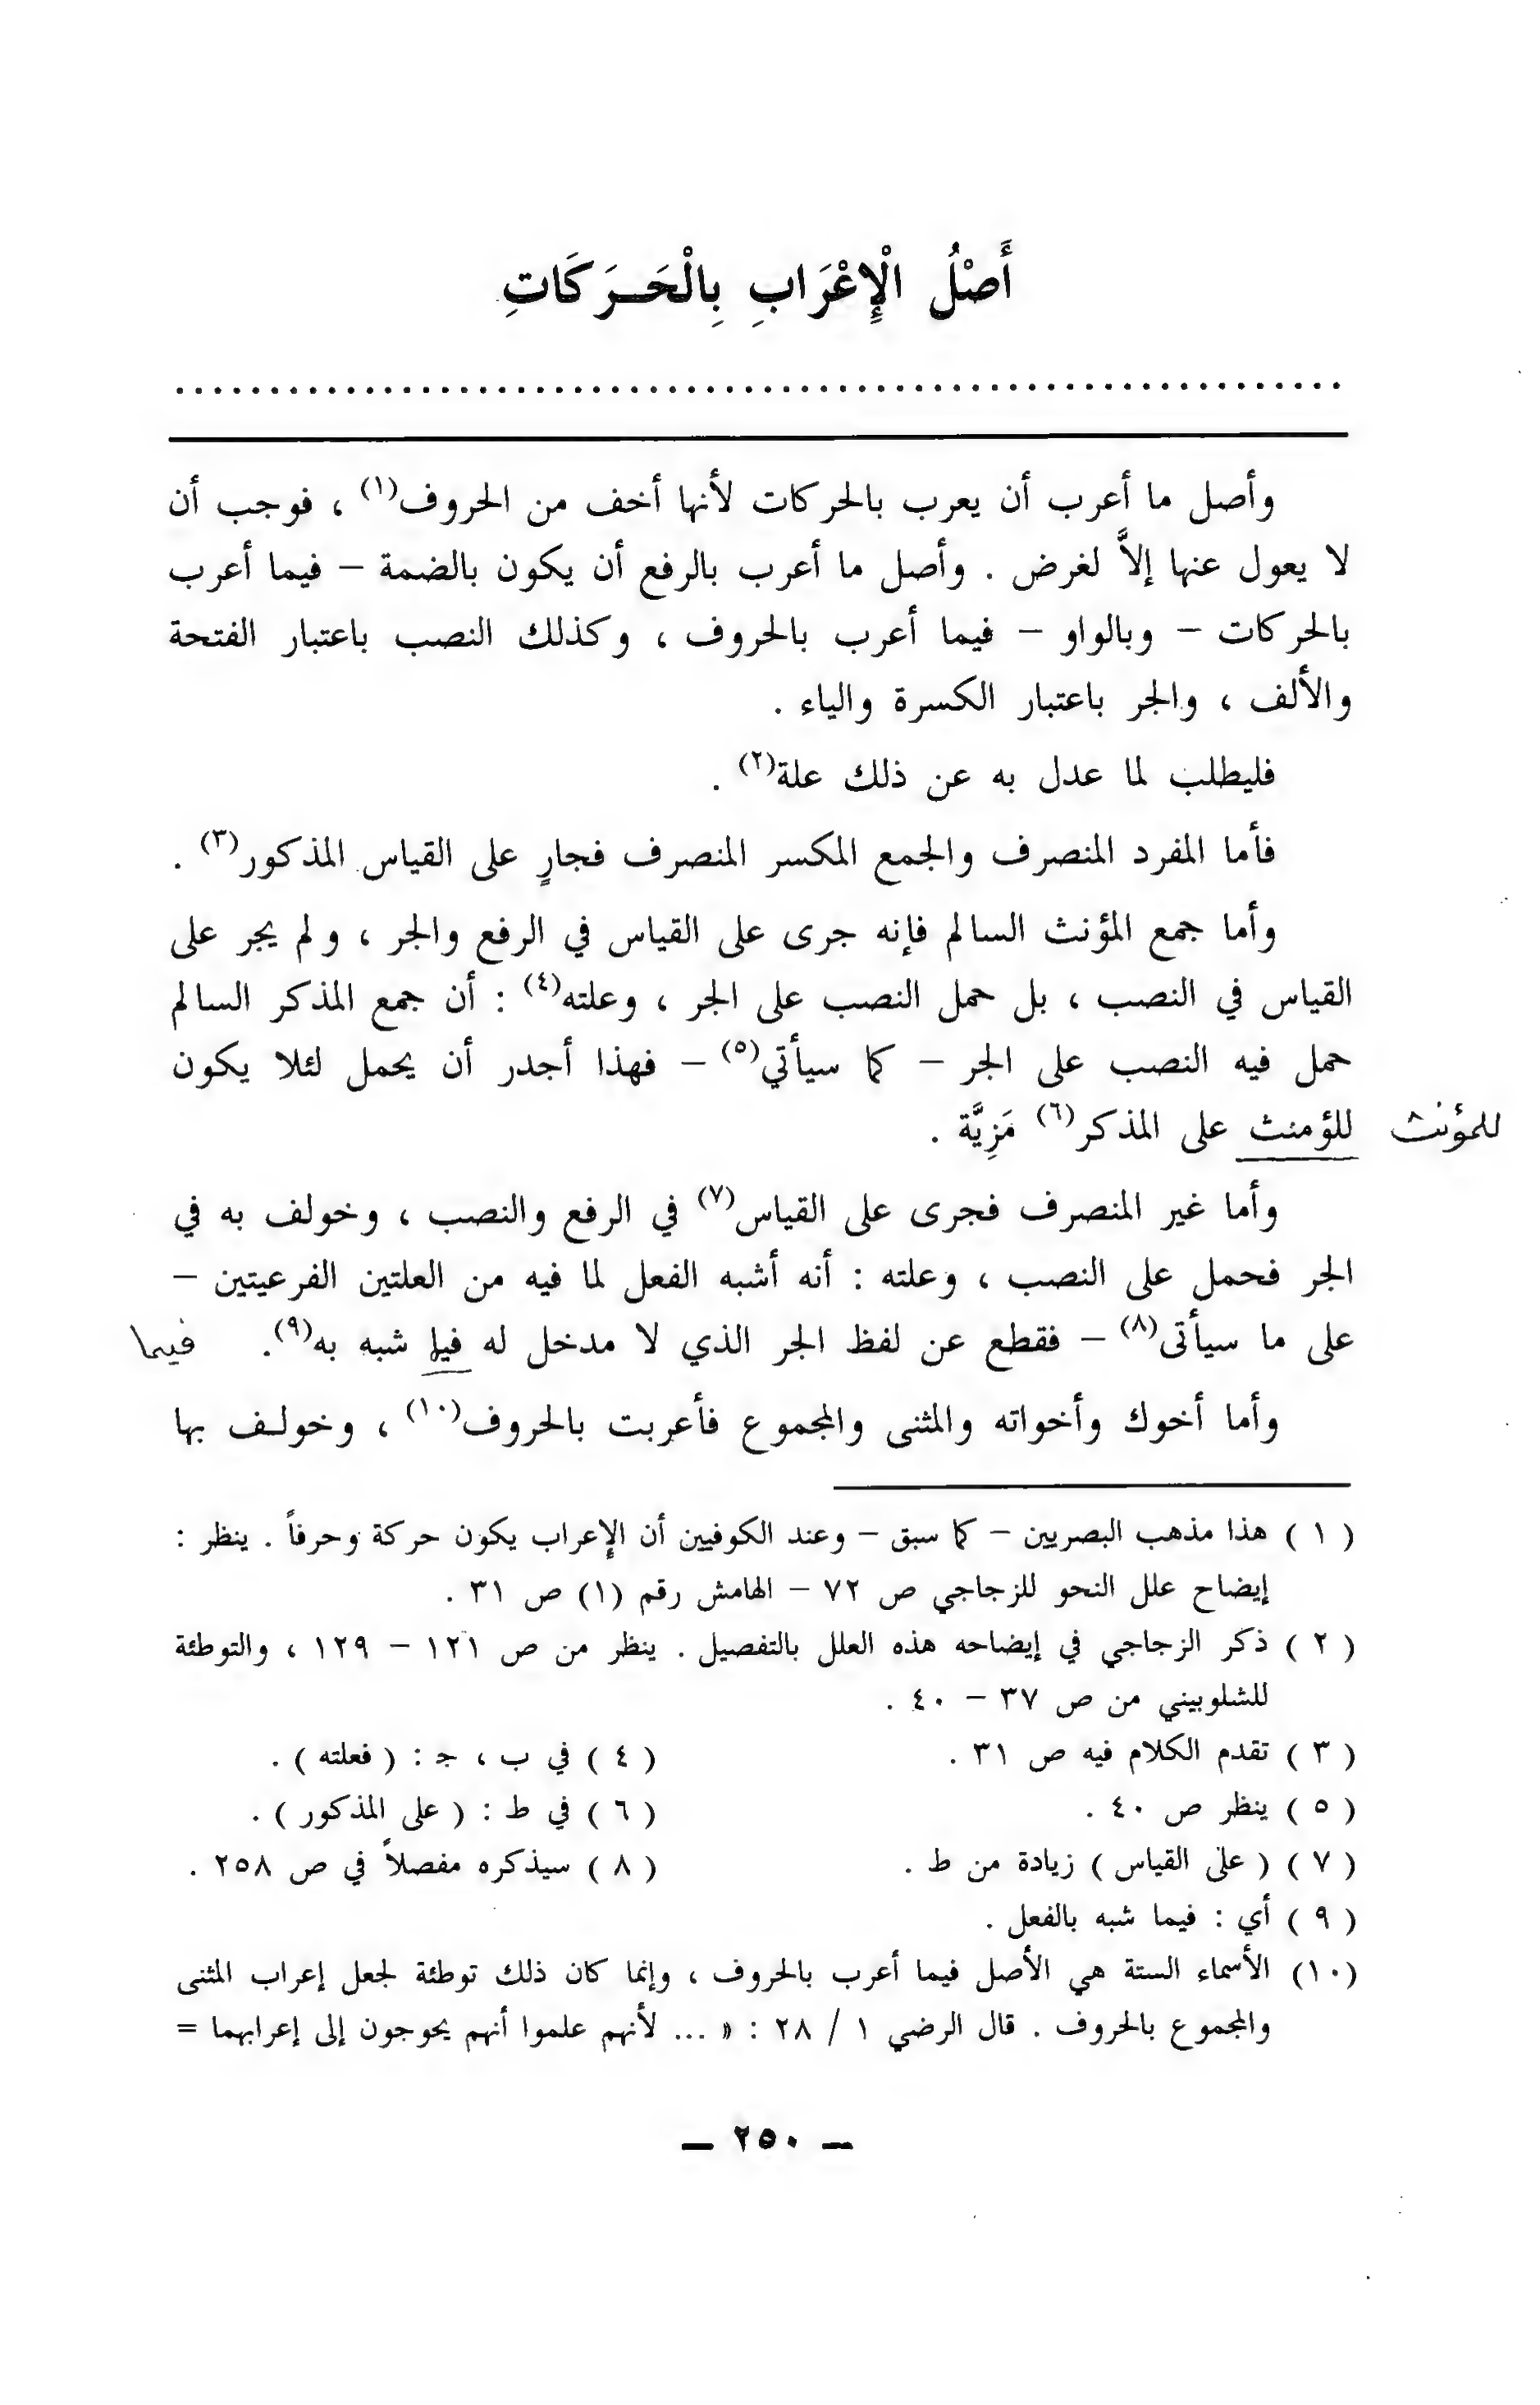 أَصْلُ الْإِعْرَابِ بِالْحَرَكَاتِ
................................................................
وأصل ما أعرب أن يعرب بالحركات لأنها أخف من الحروف(١) ، فوجب أن
لا يعول عنها إلاَّ لغرض . وأصل ما أعرب بالرفع أن يكون بالضمة – فيما أعرب
بالحركات – وبالواو – فيما أعرب بالحروف ، وكذلك النصب باعتبار الفتحة
والألف ، والجر باعتبار الكسرة والياء .
فليطلب لما عدل به عن ذلك علة(٢) .
فأما المفرد المنصرف والجمع المكسر المنصرف فجارٍ على القياس المذكور(٣) .
وأما جمع المؤنث السالم فإنه جرى على القياس في الرفع والجر ، ولم يجر على
القياس في النصب ، بل حمل النصب على الجر ، وعلته(٤) : أن جمع المذكر السالم
حمل فيه النصب على الجر – كما سيأتي(٥) – فهذا أجدر أن يحمل لئلا يكون
للمؤنث
للؤمنث على المذكر(٦) مَزِيَّة .
وأما غير المنصرف فجرى على القياس(٧) في الرفع والنصب ، وخولف به في
الجر فحمل على النصب ، وعلته : أنه أشبه الفعل لما فيه من العلتين الفرعيتين –
على ما سيأتى(٨) – فقطع عن لفظ الجر الذي لا مدخل له فيل شبه به(٩).
فيما
وأما أخوك وأخواته والمثنى والمجموع فأعربت بالحروف(١٠) ، وخولف بها
( ١ ) هذا مذهب البصريين – كما سبق – وعند الكوفيين أن الإعراب يكون حركة وحرفاً . ينظر :
إيضاح علل النحو للزجاجي ص ٧٢ – الهامش رقم (١) ص ٣١ .
( ٢ ) ذكر الزجاجي في إيضاحه هذه العلل بالتفصيل . ينظر من ص ١٢١ – ١٢٩ ، والتوطئة
للشلوبيني من ص ٣٧ – ٤٠ .
( ٣ ) تقدم الكلام فيه ص ٣١ .
( ٤ ) في ب ، جـ : ( فعلته ) .
( ٥ ) ينظر ص ٤٠ .
( ٦ ) في ط : ( على المذكور ) .
( ٧ ) ( على القياس ) زيادة من ط .
( ٨ ) سيذكره مفصلاً في ص ٢٥٨ .
( ٩ ) أي : فيما شبه بالفعل .
(١٠) الأسماء الستة هي الأصل فيما أعرب بالحروف ، وإنما كان ذلك توطئة لجعل إعراب المثنى
والمجموع بالحروف . قال الرضي ١ / ٢٨ : « ... لأنهم علموا أنهم يحوجون إلى إعرابهما =
– ٢٥٠ –